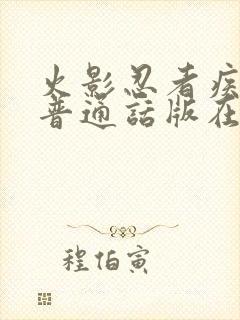 火影忍者疾
普通話版在
程伯寅